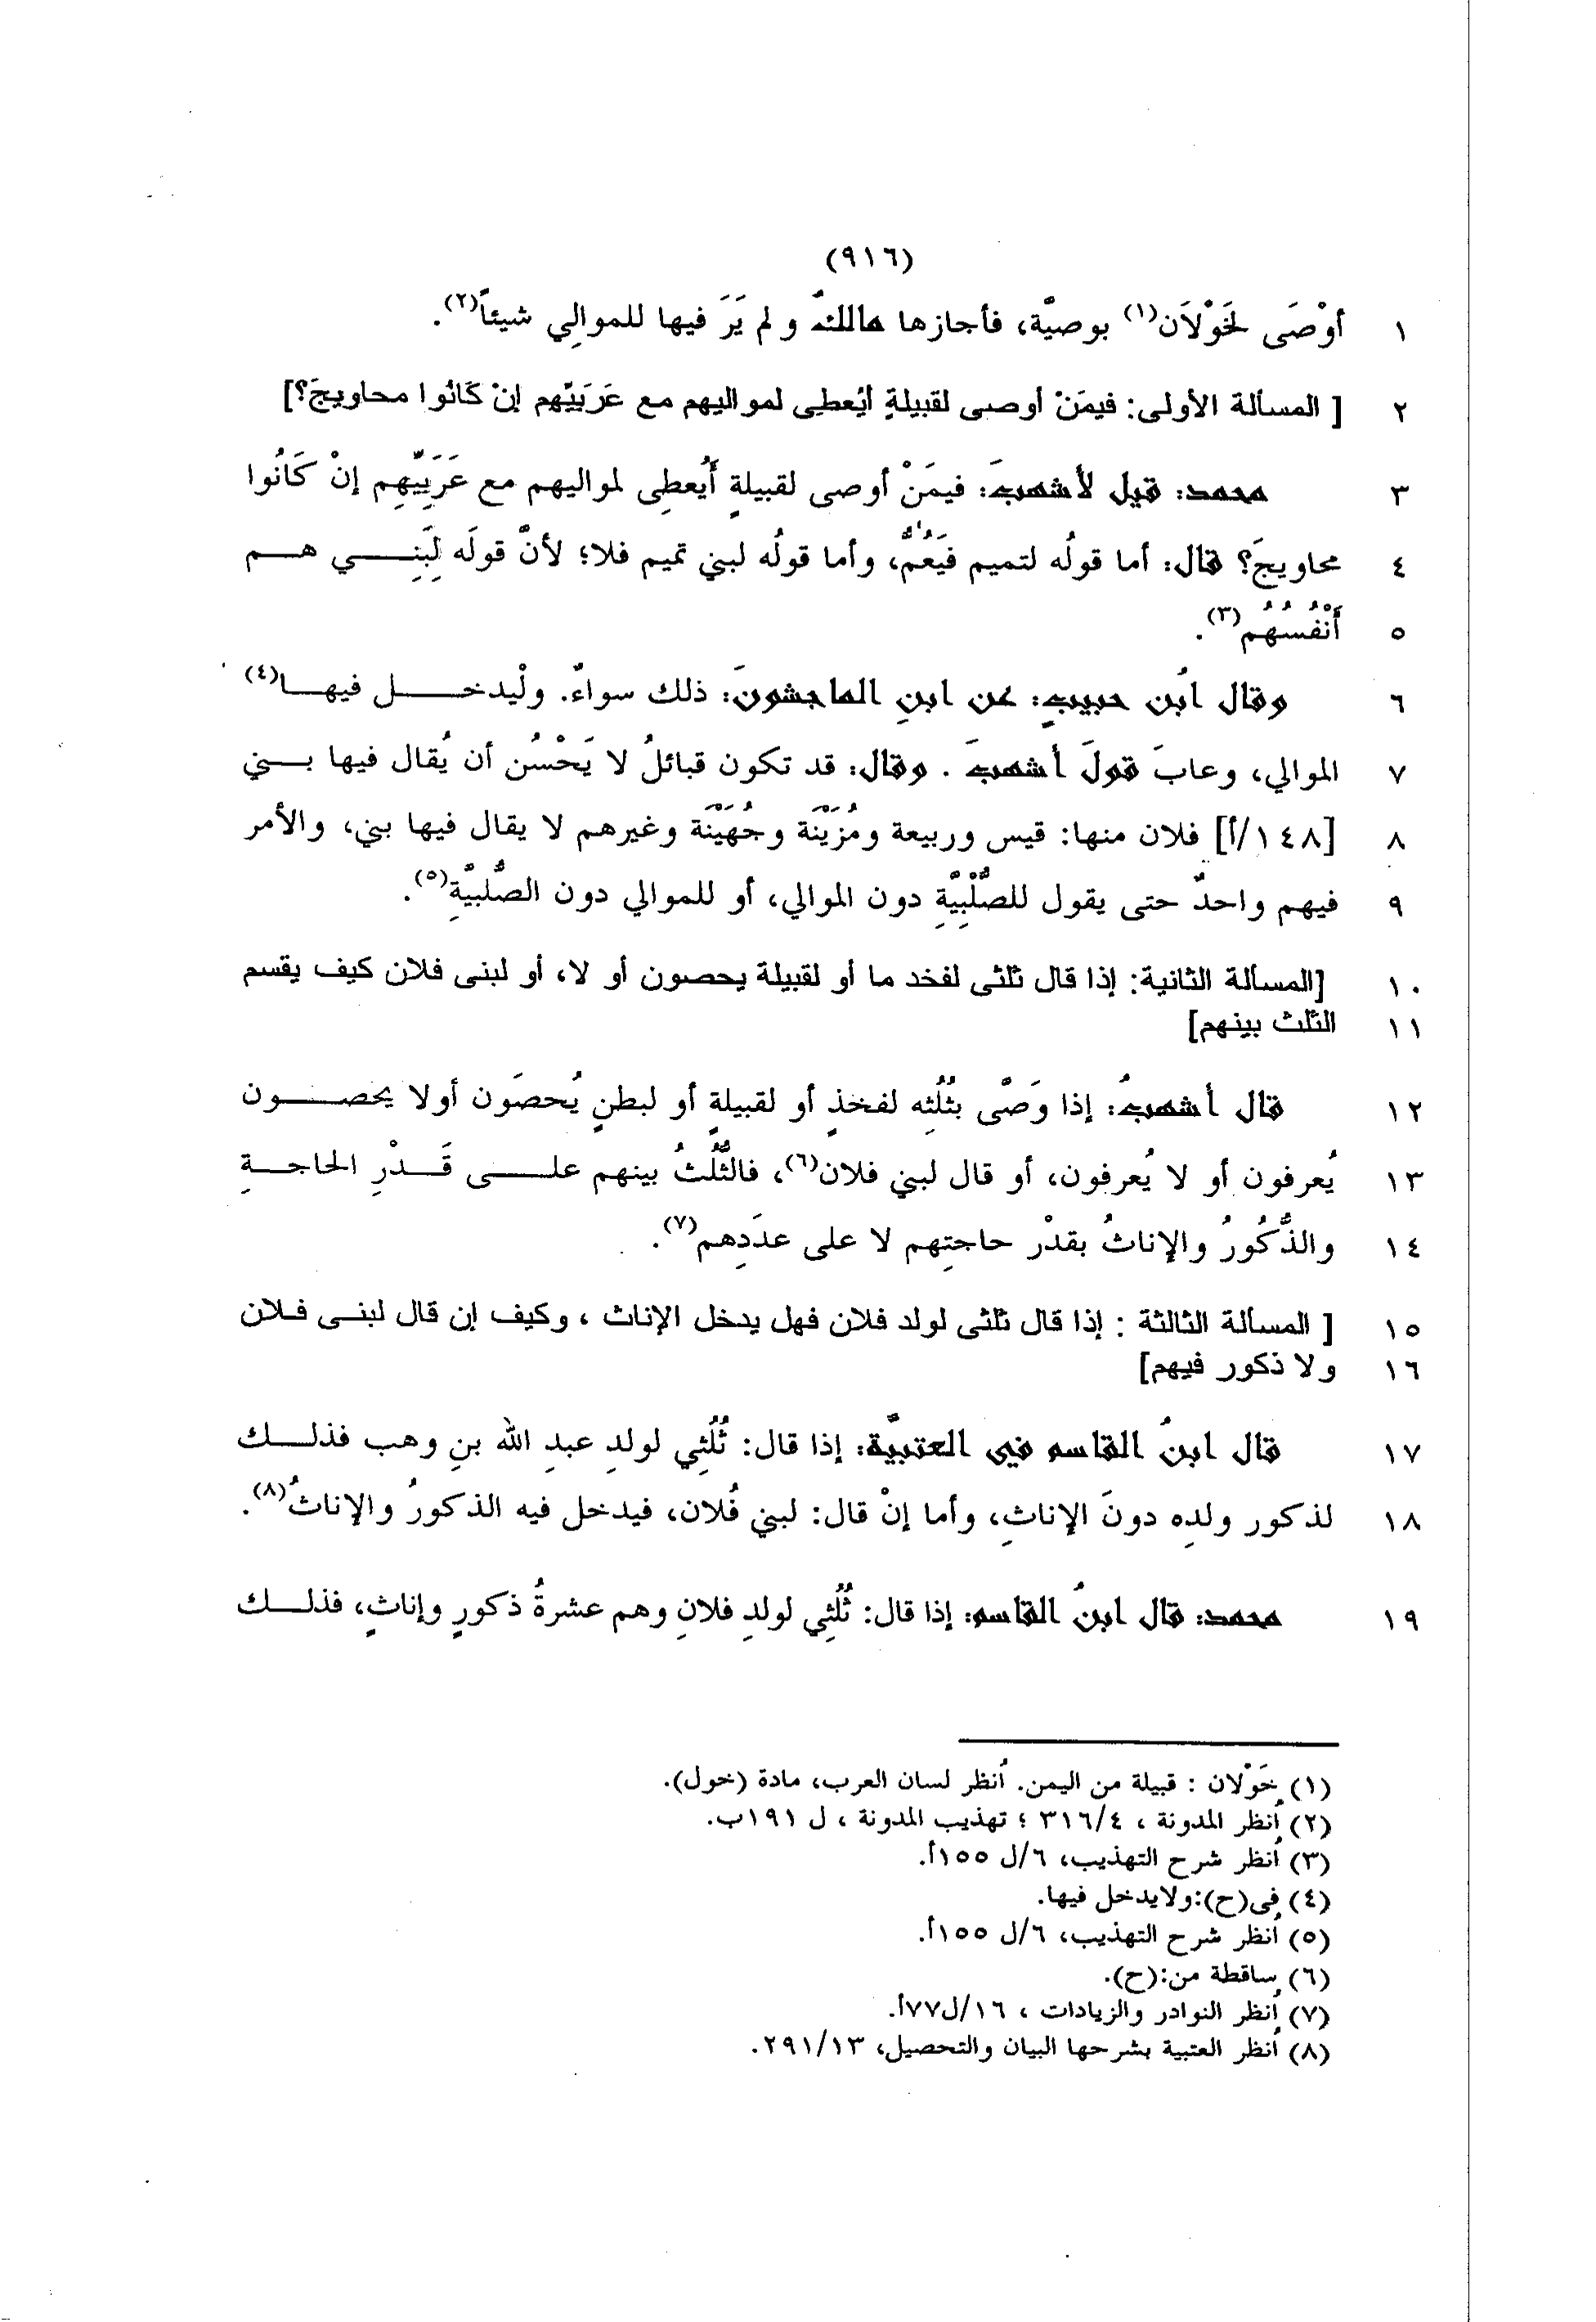 (٩١٦)
١ أوْصَى لخَوْلاَن(١) بوصيَّة، فأجازها مالكٌ و لم يَرَ فيها للموالِي شيئاً(٢).
٢ [ المسألة الأولى: فيمَنْ أوصى لقبيلةٍ أيُعطِى لمواليهم مع عَرَبَيِّهم إنْ كَانُوا محاويجَ؟]
٣ محمد: قيل لأشهبَ: فيمَنْ أوصى لقبيلةٍ أَيُعطِى لمواليهم مع عَرَبِيِّهِم إنْ كَانُوا
٤ محاويجَ؟ قال: أما قولُه لتميم فَيَعُمُّ، وأما قولُه لبني تميم فلا؛ لأنَّ قولَه لِبَنِي هم
٥ أَنْفُسُهُم(٣).
٦ وقال ابُن حبيبٍ: عن ابنِ الماجشونَ: ذلك سواءٌ. ولْيدخل فيها(٤)
٧ الموالي، وعابَ قولَ أشهبَ . وقال: قد تكون قبائلُ لا يَحْسُن أن يُقال فيها بني
٨ [١٤٨/أ] فلان منها: قيس وربيعة ومُزَيْنَة وجُهَيْنَة وغيرهم لا يقال فيها بني، والأمر
٩ فيهم واحدٌ حتى يقول للصُّلْبِيَّةِ دون الموالي، أو للموالي دون الصُّلبيَّةِ(٥).
١٠ [المسألة الثانية: إذا قال ثلثى لفخد ما أو لقبيلة يحصون أو لا، أو لبنى فلان كيف يقسم
١١ الثلث بينهم]
١٢ قال أشهبُ: إذا وَصَّى بثُلُثِه لفخذٍ أو لقبيلةٍ أو لبطنٍ يُحصَون أولا يحصون
١٣ يُعرفون أو لا يُعرفون، أو قال لبني فلان(٦)، فالثُّلُثُ بينهم على قَدْرِ الحاجةِ
١٤ والذُّكُورُ والإناثُ بقدْر حاجتِهم لا على عدَدِهم(٧).
١٥ [ المسألة الثالثة : إذا قال ثلثى لولد فلان فهل يدخل الإناث ، وكيف إن قال لبنى فلان
١٦ ولا ذكور فيهم]
١٧ قال ابنُ القاسم في العتبيَّة: إذا قال: ثُلُثِي لولدِ عبدِ الله بنِ وهب فذلك
١٨ لذكور ولدِه دونَ الإناثِ، وأما إنْ قال: لبني فُلان، فيدخل فيه الذكورُ والإناثُ(٨).
١٩ محمد: قال ابنُ القاسم: إذا قال: ثُلُثِي لولدِ فلانِ وهم عشرةُ ذكورٍ وإناثٍ، فذلك
(١) خَوْلان : قبيلة من اليمن. اُنظر لسان العرب، مادة (خول).
(٢) اُنظر المدونة ، ٣١٦/٤ ؛ تهذيب المدونة ، ل ١٩١ب.
(٣) اُنظر شرح التهذيب، ٦/ل ١٥٥أ.
(٤) فى(ح):ولايدخل فيها.
(٥) اُنظر شرح التهذيب، ٦/ل ١٥٥أ.
(٦) ساقطة من:(ح).
(٧) اُنظر النوادر والزيادات ، ١٦/ل٧٧أ.
(٨) اُنظر العتبية بشرحها البيان والتحصيل، ٢٩١/١٣.